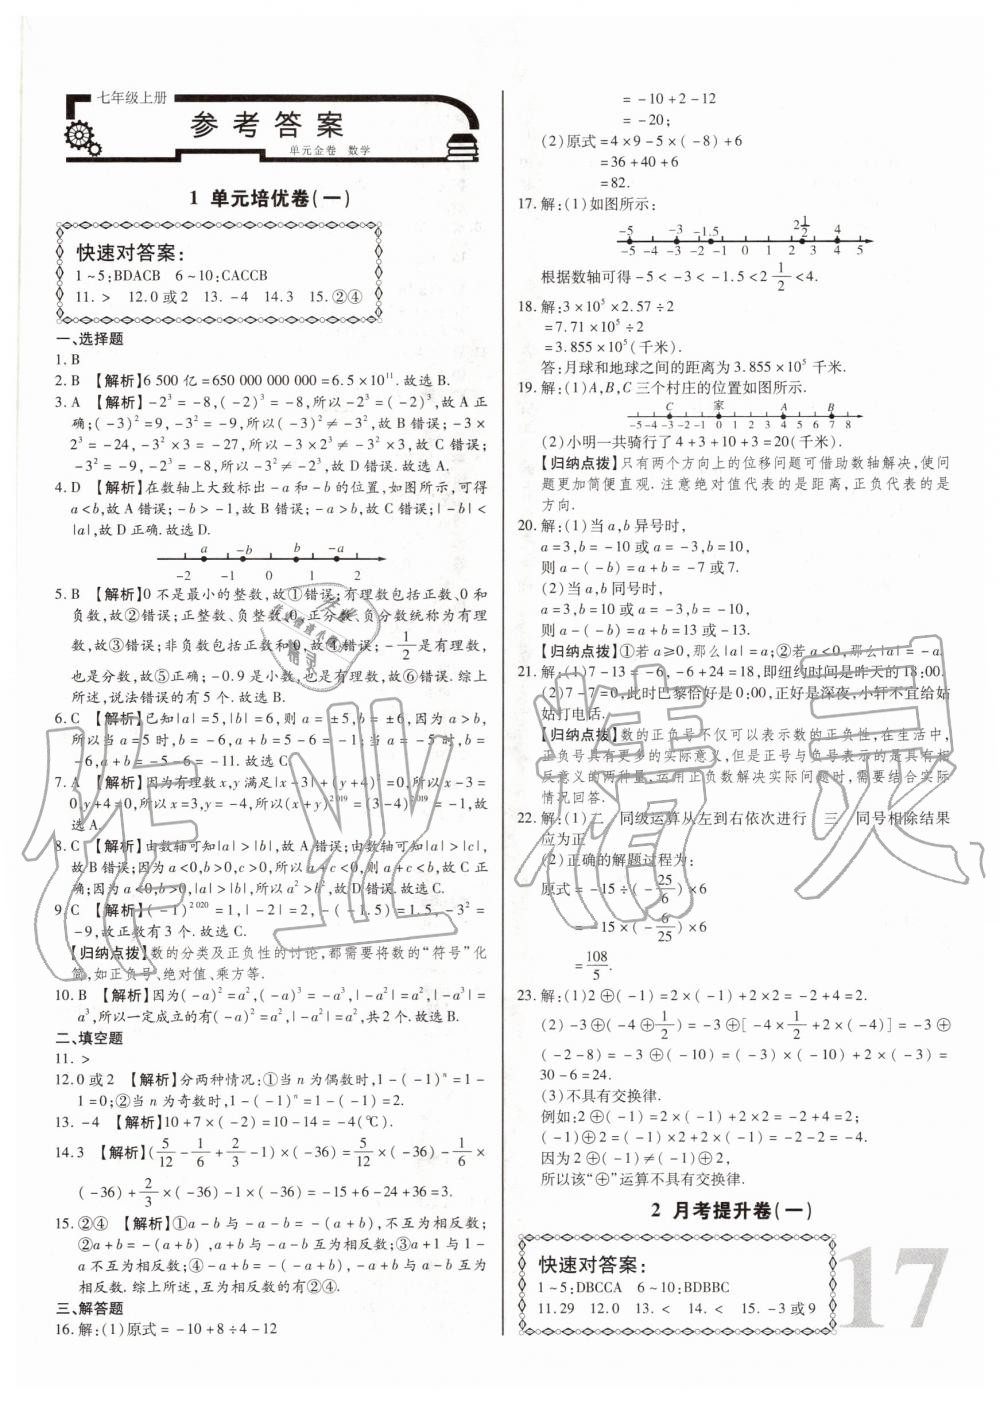 七年级上册
参考答案
单元金卷 数学
1 单元培优卷(一)
快速对答案:
1~5:BDACB 6~10:CACCB
11. > 12.0或2 13. -4 14.3 15.②④
一、选择题
1. B
2. B 【解析】6 500亿=650 000 000 000=6.5×10¹¹.故选B.
3. A 【解析】-2³=-8,(-2)³=-8,所以-2³=(-2)³,故A正
确;(-3)²=9,-3²=-9,所以(-3)²≠-3²,故B错误;-3×
2³=-24,-3²×3=-27,所以-3×2³≠-3²×3,故C错误;
-3²=-9,-2³=-8,所以-3²≠-2³,故D错误.故选A.
4. D 【解析】在数轴上大致标出-a和-b的位置,如图所示,可得
a<b,故A错误;-b>-1,故B错误;-a>b,故C错误;|-b|<
|a|,故D正确.故选D.
a -b b -a
-2 -1 0 1 2
5. B 【解析】0不是最小的整数,故①错误;有理数包括正数、0和
负数,故②错误;正整数、负整数、0、正分数、负分数统称为有理
数,故③错误;非负数包括正数和0,故④错误;-1/2是有理数,
也是分数,故⑤正确;-0.9是小数,也是有理数,故⑥错误.综上
所述,说法错误的有5个.故选B.
6. C 【解析】已知|a|=5,|b|=6,则a=±5,b=±6,因为a>b,
所以当a=5时,b=-6,a+b=5-6=-1;当a=-5时,b=
-6,a+b=-5-6=-11.故选C.
7. A 【解析】因为有理数x,y满足|x-3|+(y+4)²=0,所以x-3=
0,y+4=0,所以x=3,y=-4,所以(x+y)²⁰¹⁹=(3-4)²⁰¹⁹=-1,故
选A.
8. C 【解析】由数轴可知|a|>|b|,故A错误;由数轴可知|a|>|c|,
故B错误;因为a<0,b>0,c>0,所以a+c<0,则a+c<b,故C正
确;因为a<0,b>0,|a|>|b|,所以a²>b²,故D错误.故选C.
9. C 【解析】(-1)²⁰²⁰=1,|-2|=2,-(-1.5)=1.5,-3²=
-9,故正数有3个.故选C.
【归纳点拨】数的分类及正负性的讨论,都需要将数的“符号”化
简,如正负号、绝对值、乘方等.
10. B 【解析】因为(-a)²=a²,(-a)³=-a³,|-a²|=a²,|-a³|=
a³,所以一定成立的有(-a)²=a²,|-a²|=a²,共2个.故选B.
二、填空题
11. >
12.0或2 【解析】分两种情况:①当n为偶数时,1-(-1)ⁿ=1-
1=0;②当n为奇数时,1-(-1)ⁿ=1+1=2.
13. -4 【解析】10+7×(-2)=10-14=-4(℃).
14.3 【解析】(5/12-1/6+2/3-1)×(-36)=5/12×(-36)-1/6×
(-36)+2/3×(-36)-1×(-36)=-15+6-24+36=3.
15. ②④ 【解析】①a-b与-a-b=-(a+b),不互为相反数;
②a+b=-(a+b),a+b与-a-b互为相反数;③a+1与1-
a不互为相反数;④-a+b=-(a-b),-a+b与a-b互为相
反数.综上所述,互为相反数的有②④.
三、解答题
16. 解:(1)原式=-10+8÷4-12
=-10+2-12
=-20;
(2)原式=4×9-5×(-8)+6
=36+40+6
=82.
17. 解:(1)如图所示:
-5 -3 -1.5 2 1/2 4
-5 -4 -3 -2 -1 0 1 2 3 4 5
根据数轴可得-5<-3<-1.5<2 1/2<4.
18. 解:3×10⁵×2.57÷2
=7.71×10⁵÷2
=3.855×10⁵(千米).
答:月球和地球之间的距离为3.855×10⁵千米.
19. 解:(1)A,B,C三个村庄的位置如图所示.
C 家 A B
-5 -4 -3 -2 -1 0 1 2 3 4 5 6 7 8
(2)小明一共骑行了4+3+10+3=20(千米).
【归纳点拨】只有两个方向上的位移问题可借助数轴解决,使问
题更加简便直观.注意绝对值代表的是距离,正负代表的是
方向.
20. 解:(1)当a,b异号时,
a=3,b=-10或a=-3,b=10,
则a-(-b)=a+b=-7或7.
(2)当a,b同号时,
a=3,b=10或a=-3,b=-10,
则a-(-b)=a+b=13或-13.
【归纳点拨】①若a≥0,那么|a|=a;②若a<0,那么|a|=-a.
21. 解:(1)7-13=-6,-6+24=18,即纽约时间是昨天的18:00.
(2)7-7=0,此时巴黎恰好是0:00,正好是深夜,小轩不宜给姑
姑打电话.
【归纳点拨】数的正负号不仅可以表示数的正负性,在生活中,
正负号具有更多的实际意义,但是正号与负号表示的是具有相
反意义的两种量,运用正负数解决实际问题时,需要结合实际
情况回答.
22. 解:(1)二 同级运算从左到右依次进行 三 同号相除结果
应为正
(2)正确的解题过程为:
原式=-15÷(-25/6)×6
=-15×(-6/25)×6
=108/5.
23. 解:(1)2⊕(-1)=2×(-1)+2×2=-2+4=2.
(2)-3⊕(-4⊕1/2)=-3⊕[-4×1/2+2×(-4)]=-3⊕
(-2-8)=-3⊕(-10)=(-3)×(-10)+2×(-3)=
30-6=24.
(3)不具有交换律.
例如:2⊕(-1)=2×(-1)+2×2=-2+4=2;
(-1)⊕2=(-1)×2+2×(-1)=-2-2=-4.
因为2⊕(-1)≠(-1)⊕2,
所以该“⊕”运算不具有交换律.
2 月考提升卷(一)
快速对答案:
1~5:DBCCA 6~10:BDBBC
11.29 12.0 13. < 14. < 15. -3或9
17
作业精灵